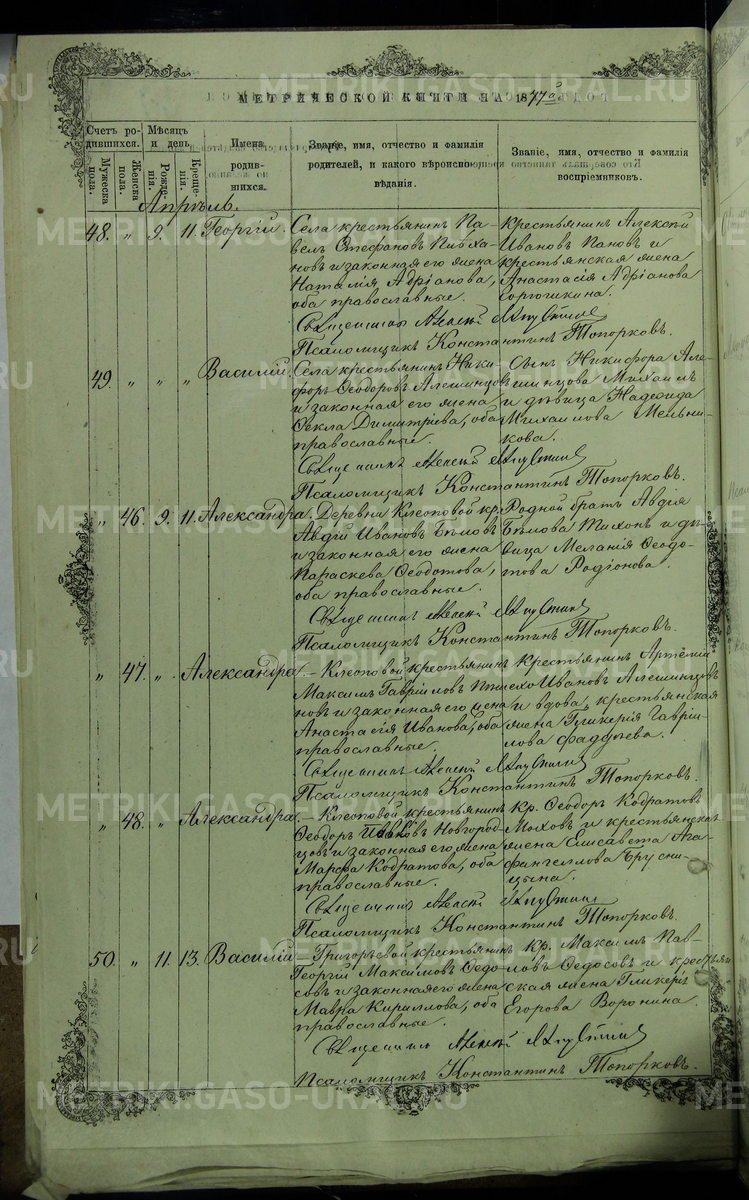 МЕТРИЧЕСКОЙ КНИГИ НА 1877й
Счетъ родившихся.
Мѣсяцъ и день.
Имена родившихся.
Званіе, имя, отчество и фамилія родителей, и какого вѣроисповѣданія.
Званіе, имя, отчество и фамилія воспріемниковъ.
Мужеска пола.
Женска пола.
Рожденія.
Крещенія.
Апрѣль.
48. " 9. 11. Георгій.
Села крестьянинъ Па-
велъ Стефановъ
новъ и законная его жена
Наталія Адріанова,
оба православные.
Крестьянинъ Алексѣй
Ивановъ Пановъ и
крестьянская жена
Анастасія Адріанова
Священникъ Алексѣй
Псаломщикъ Константинъ Топорковъ.
49. " " " Василій.
Села крестьянинъ Ники-
форъ Ѳеодоровъ Алешинцовъ
и законная его жена
Ѳекла Димитріева, оба
православные.
Сынъ Никифора Але-
шинцова Михаилъ
и дѣвица Надежда
Михаилова Мельни-
кова.
Священникъ Алексѣй
Псаломщикъ Константинъ Топорковъ.
" 46. 9. 11. Александра.
Деревни Клеоповой кр.
Авдій Ивановъ Бѣловъ
и законная его жена
Параскева Ѳеодотова,
оба православные.
Родной братъ Авдія
Бѣлова Тихонъ и дѣ-
вица Меланія Ѳеодо-
това Родіонова.
Священникъ Алексѣй
Псаломщикъ Константинъ Топорковъ.
" 47. " Александра.
Клеоповой крестьянинъ
Максимъ Гавріиловъ
новъ и законная его жена
Анастасія Иванова, оба
православные.
Крестьянинъ Артемій
Ивановъ Алешинцовъ
и вдова, крестьянская
жена Гликерія Гаврі-
лова Фаддѣева.
Священникъ Алексѣй
Псаломщикъ Константинъ Топорковъ.
" 48. " Александра.
Клеоповой крестьянинъ
Ѳеодоръ Новгород-
цовъ и законная его жена
Марѳа Кодратова, оба
православные.
Кр. Ѳеодоръ Кодратовъ
Моховъ и крестьянская
жена Елисавета Ага-
фангелова Брусни-
цына.
Священникъ Алексѣй
Псаломщикъ Константинъ Топорковъ.
50. " 11. 13. Василій
Григорьевой крестьянинъ
Георгій Максимовъ Ѳедо-
совъ и законная его жена
Мавра Кириллова, оба
православные.
Кр. Максимъ Пав-
ловъ Ѳедосовъ и крестьян-
ская жена Гликерія
Егорова Воронина.
Священникъ Алексѣй
Псаломщикъ Константинъ Топорковъ.
METRIKI.GASO-URAL.RU